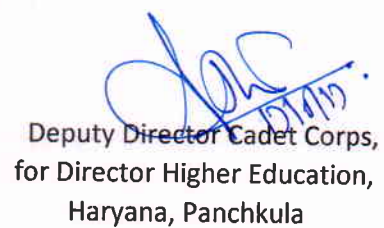 Deputy Director Cadet Corps,
for Director Higher Education,
Haryana, Panchkula